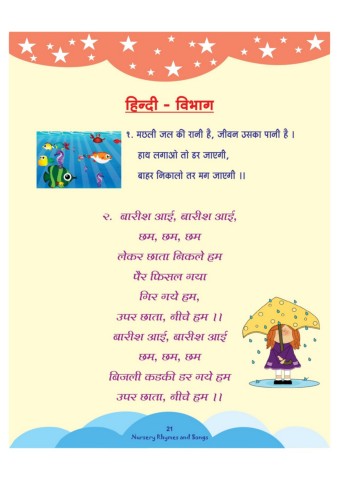 हिन्दी - विभाग
१. मछली जल की रानी है, जीवन उसका पानी है ।
हाथ लगाओ तो डर जाएगी,
बाहर निकालो तर मग जाएगी ।।
२. बारीश आई, बारीश आई,
छम, छम, छम
लेकर छाता निकले हम
पैर फिसल गया
गिर गये हम,
उपर छाता, नीचे हम ।।
बारीश आई, बारीश आई
छम, छम, छम
बिजली कडकी डर गये हम
उपर छाता, नीचे हम ।।
21
Nursery Rhymes and Songs